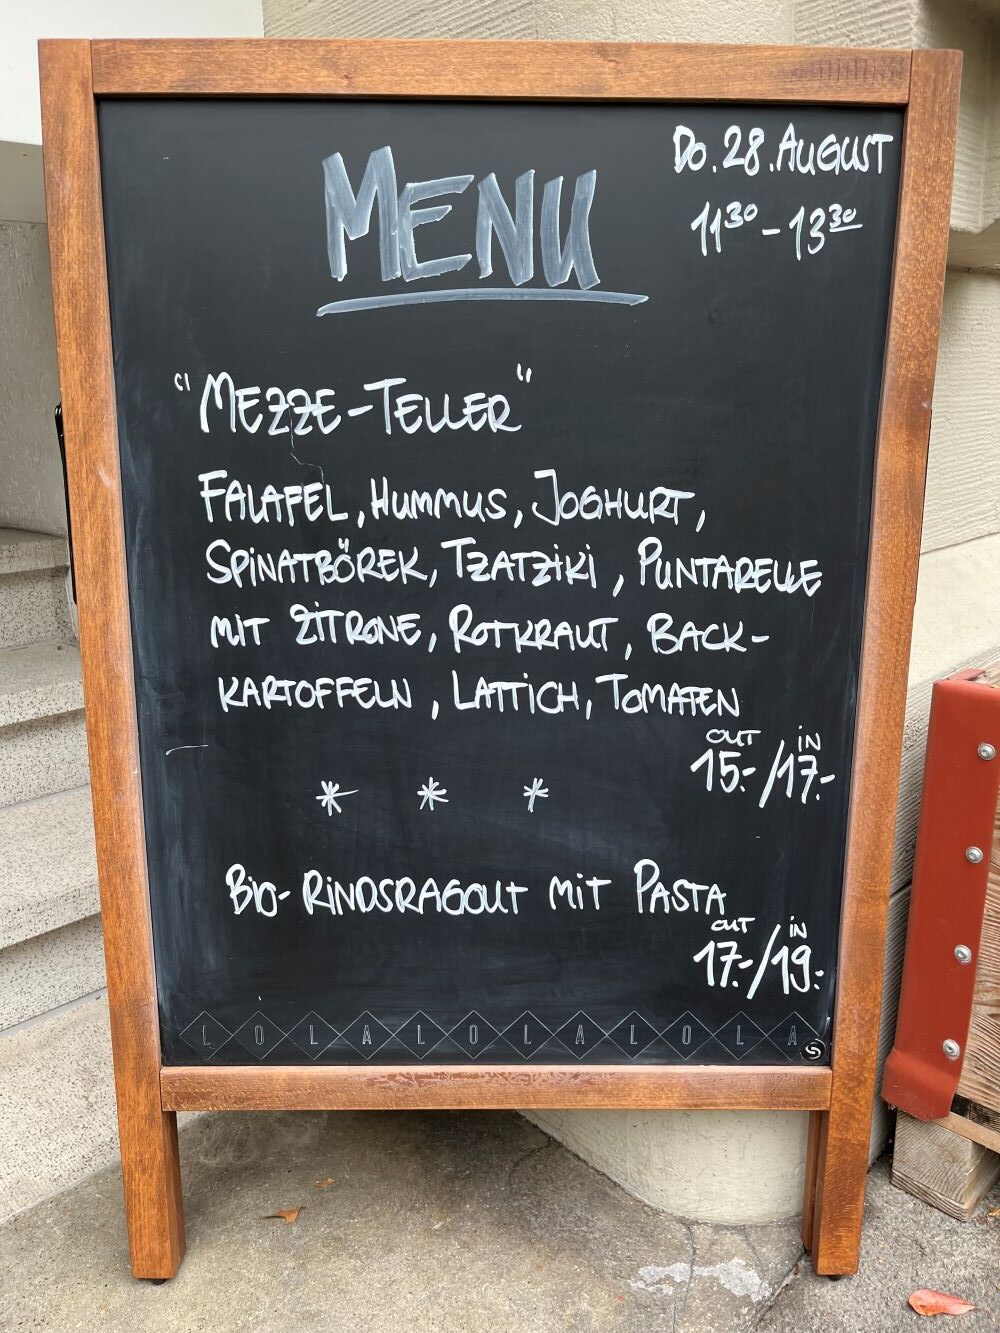 Do. 28. AUGUST
11³⁰ - 13³⁰
MENU
"MEZZE-TELLER"
FALAFEL, HUMMUS, JOGHURT,
SPINATBÖREK, TZATZIKI, PUNTARELLE
MIT ZITRONE, ROTKRAUT, BACK-
KARTOFFELN, LATTICH, TOMATEN
OUT IN
15.-/17.-
* * *
BIO-RINDSRAGOUT MIT PASTA
OUT IN
17.-/19.-
LOLALOLALOLA